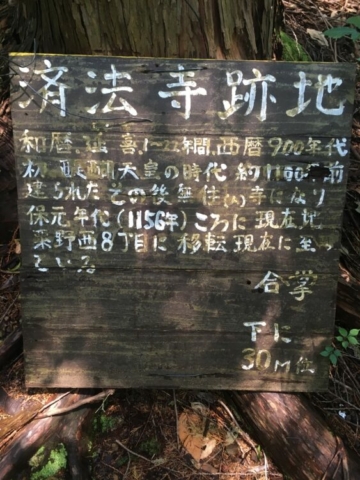 済法寺跡地
和暦、延喜、1～22年間、西暦900年代
初、醍醐天皇の時代 約1100年前
建られた その後無住(人)寺になり
保元年代(1156年)ころに 現在地
粟野西8丁目に 移転 現在に至っ
ている
合掌
下に
30M位